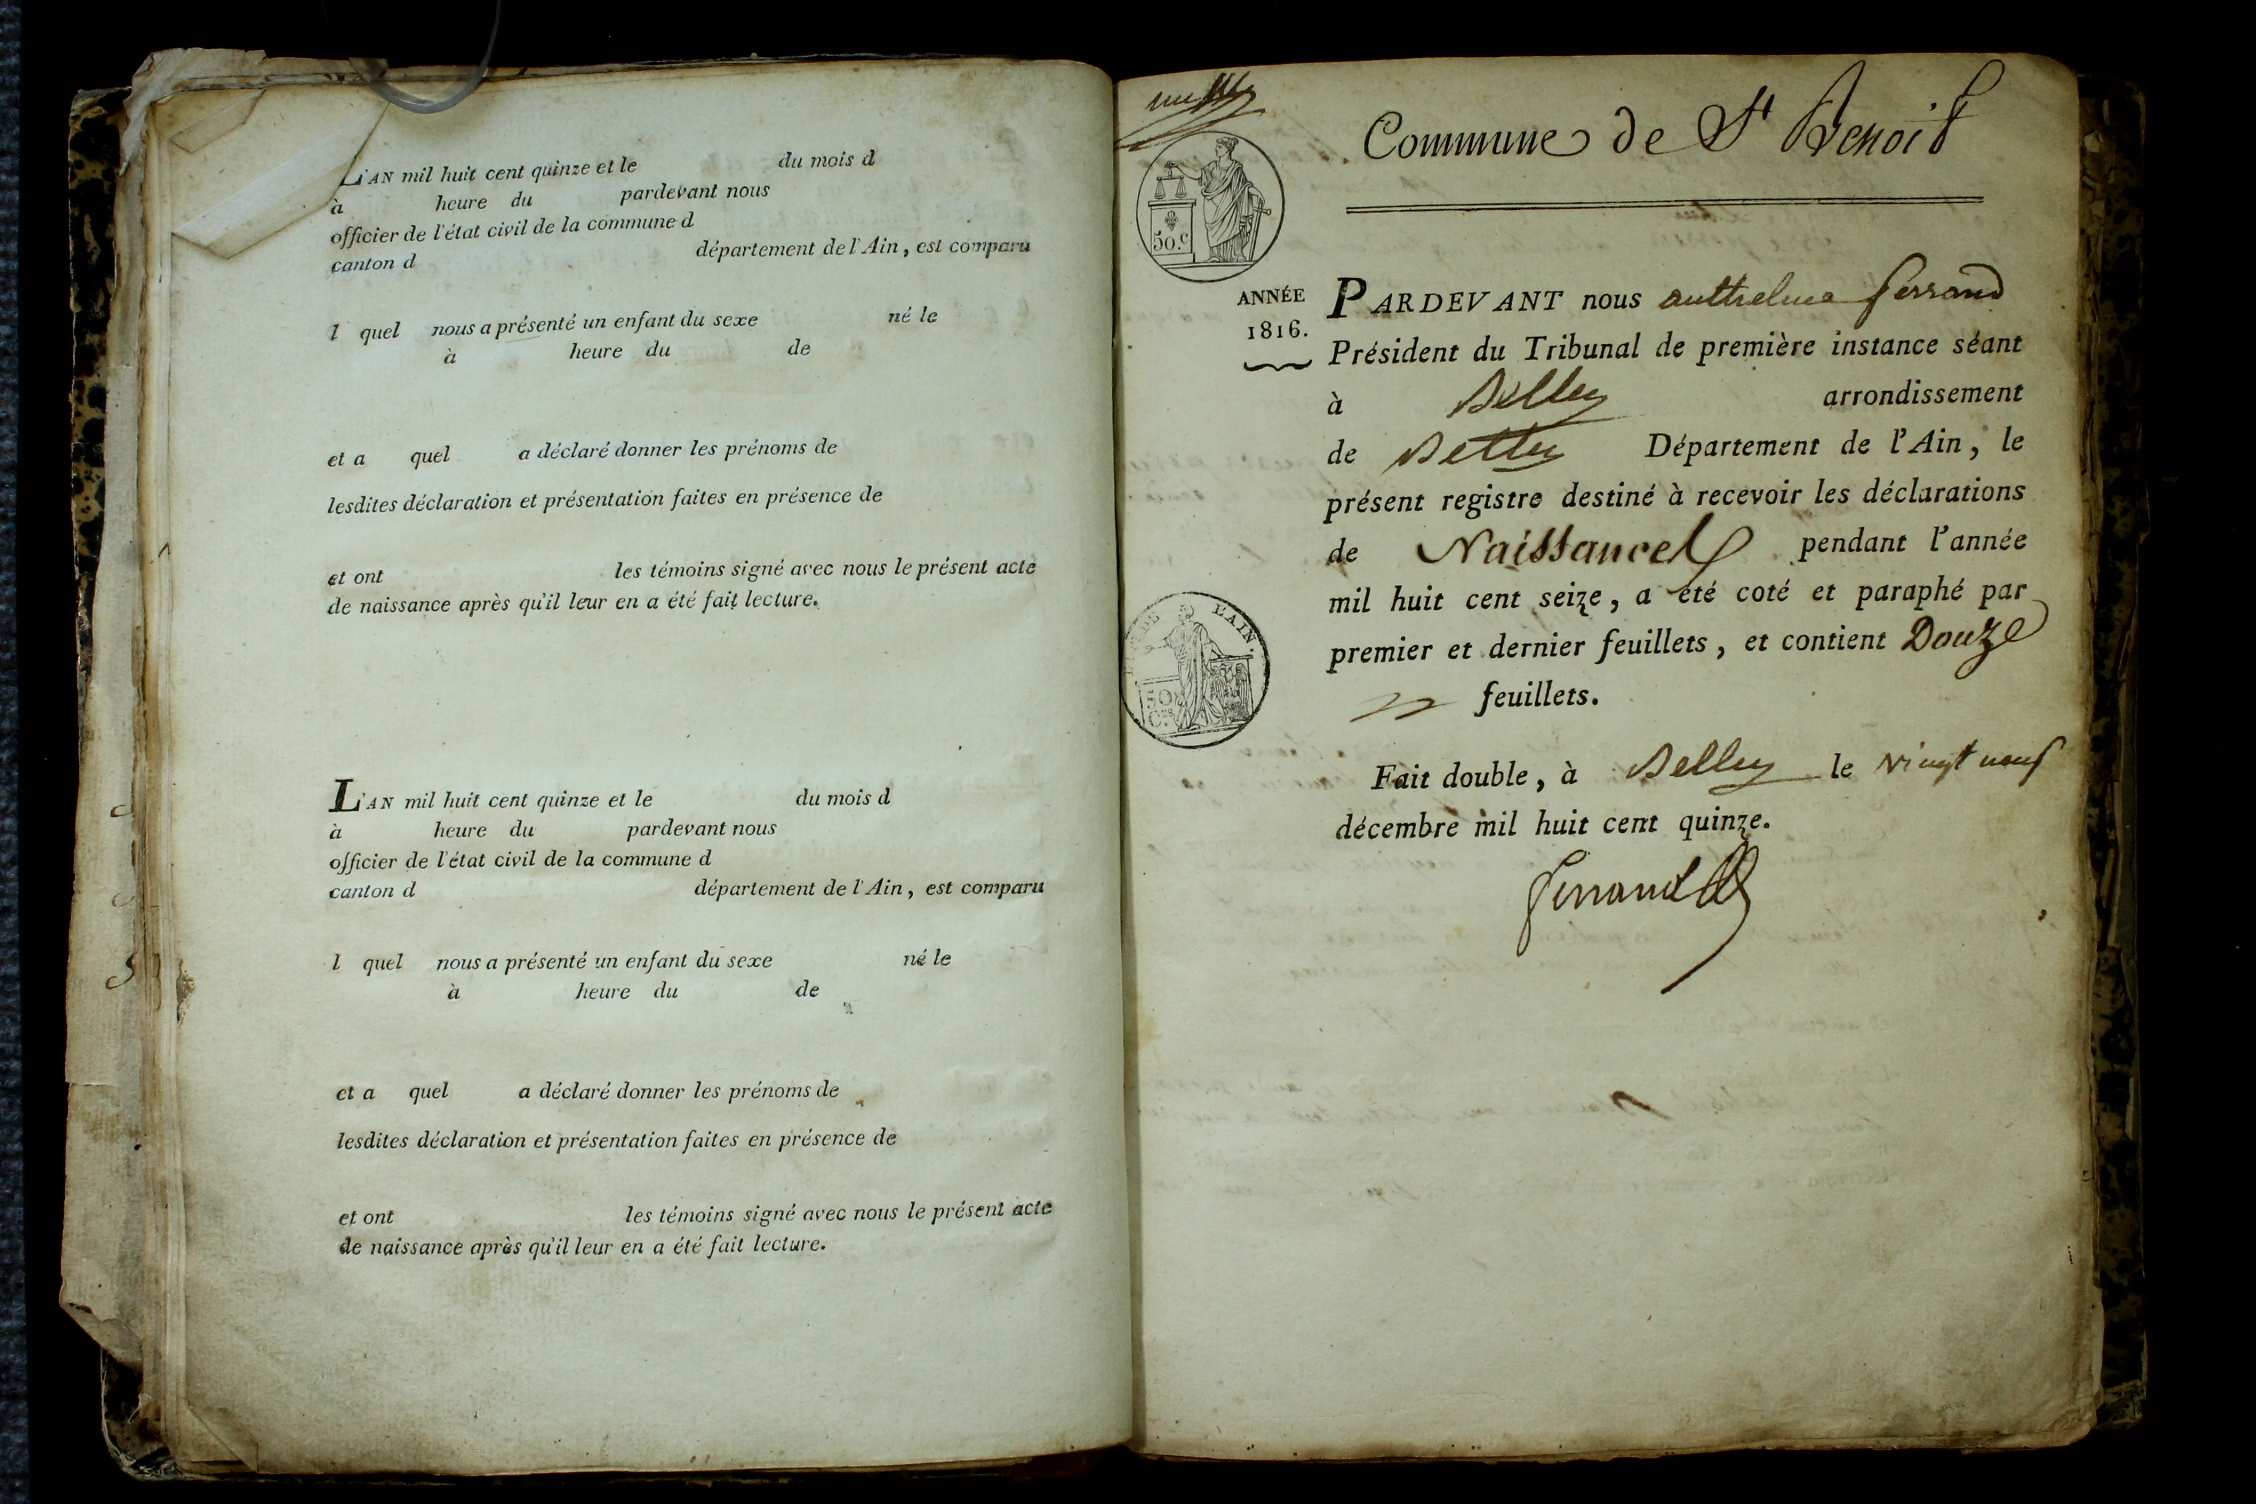 L'AN mil huit cent quinze et le du mois d
à heure du pardevant nous
officier de l'état civil de la commune d
canton d département de l'Ain, est comparu
l quel nous a présenté un enfant du sexe né le
à heure du de
et a quel a déclaré donner les prénoms de
lesdites déclaration et présentation faites en présence de
et ont les témoins signé avec nous le présent acte
de naissance après qu'il leur en a été fait lecture.
L'AN mil huit cent quinze et le du mois d
à heure du pardevant nous
officier de l'état civil de la commune d
canton d département de l'Ain, est comparu
l quel nous a présenté un enfant du sexe né le
à heure du de
et a quel a déclaré donner les prénoms de
lesdites déclaration et présentation faites en présence de
et ont les témoins signé avec nous le présent acte
de naissance après qu'il leur en a été fait lecture.
Commune de St Benoit
50.c
ANNÉE
1816.
PARDEVANT nous anthelme ferrand
Président du Tribunal de première instance séant
à Belley arrondissement
de Belley Département de l'Ain, le
présent registre destiné à recevoir les déclarations
de Naissances pendant l'année
mil huit cent seize, a été coté et paraphé par
premier et dernier feuillets, et contient Douze
feuillets.
DE L'AIN.
50
C.es
Fait double, à Belley le vingt neuf
décembre mil huit cent quinze.
ferrand